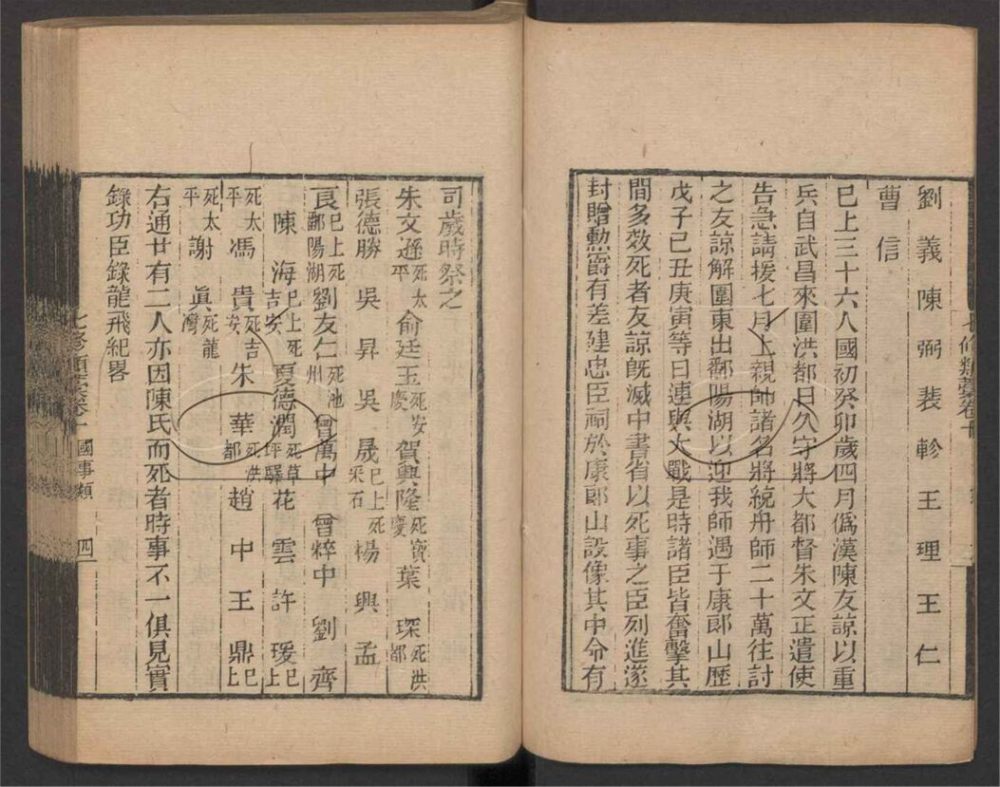 劉義陳弼裴軫王理王仁
曹信
已上三十六人國初癸卯歲四月僞漢陳友諒以重
兵自武昌來圍洪都日久守將大都督朱文正遣使
告急請援七月上親帥諸名將統舟師二十萬往討
之友諒解圍東出鄱陽湖以迎我師遇于康郎山歷
戊子己丑庚寅等日連與大戰是時諸臣皆奮擊其
間多效死者友諒旣滅中書省以死事之臣列進遂
封贈勲爵有差建忠臣祠於康郎山設像其中命有
司歲時祭之
朱文遜死太平俞廷玉死安慶賀興隆死寶慶葉琛死洪都
張德勝吳昇吳晟已上死采石楊興孟
良已上死鄱陽湖劉友仁死池州曾萬中曾粹中劉齊
陳海已上死吉安夏德潤死草坪驛花雲許瑗已上
死太平馮貴死吉安朱華死洪都趙中王鼎已上
死太平謝眞死龍灣
右通廿有二人亦因陳氏而死者時事不一俱見實
錄功臣錄龍飛紀畧
七修類藁卷十 國事類 四